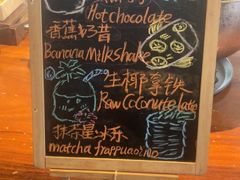 Hot chocolate
香蕉奶昔
Banana Milkshake
生椰拿铁
Raw Coconut latte
抹茶星冰乐
matcha frappuccino